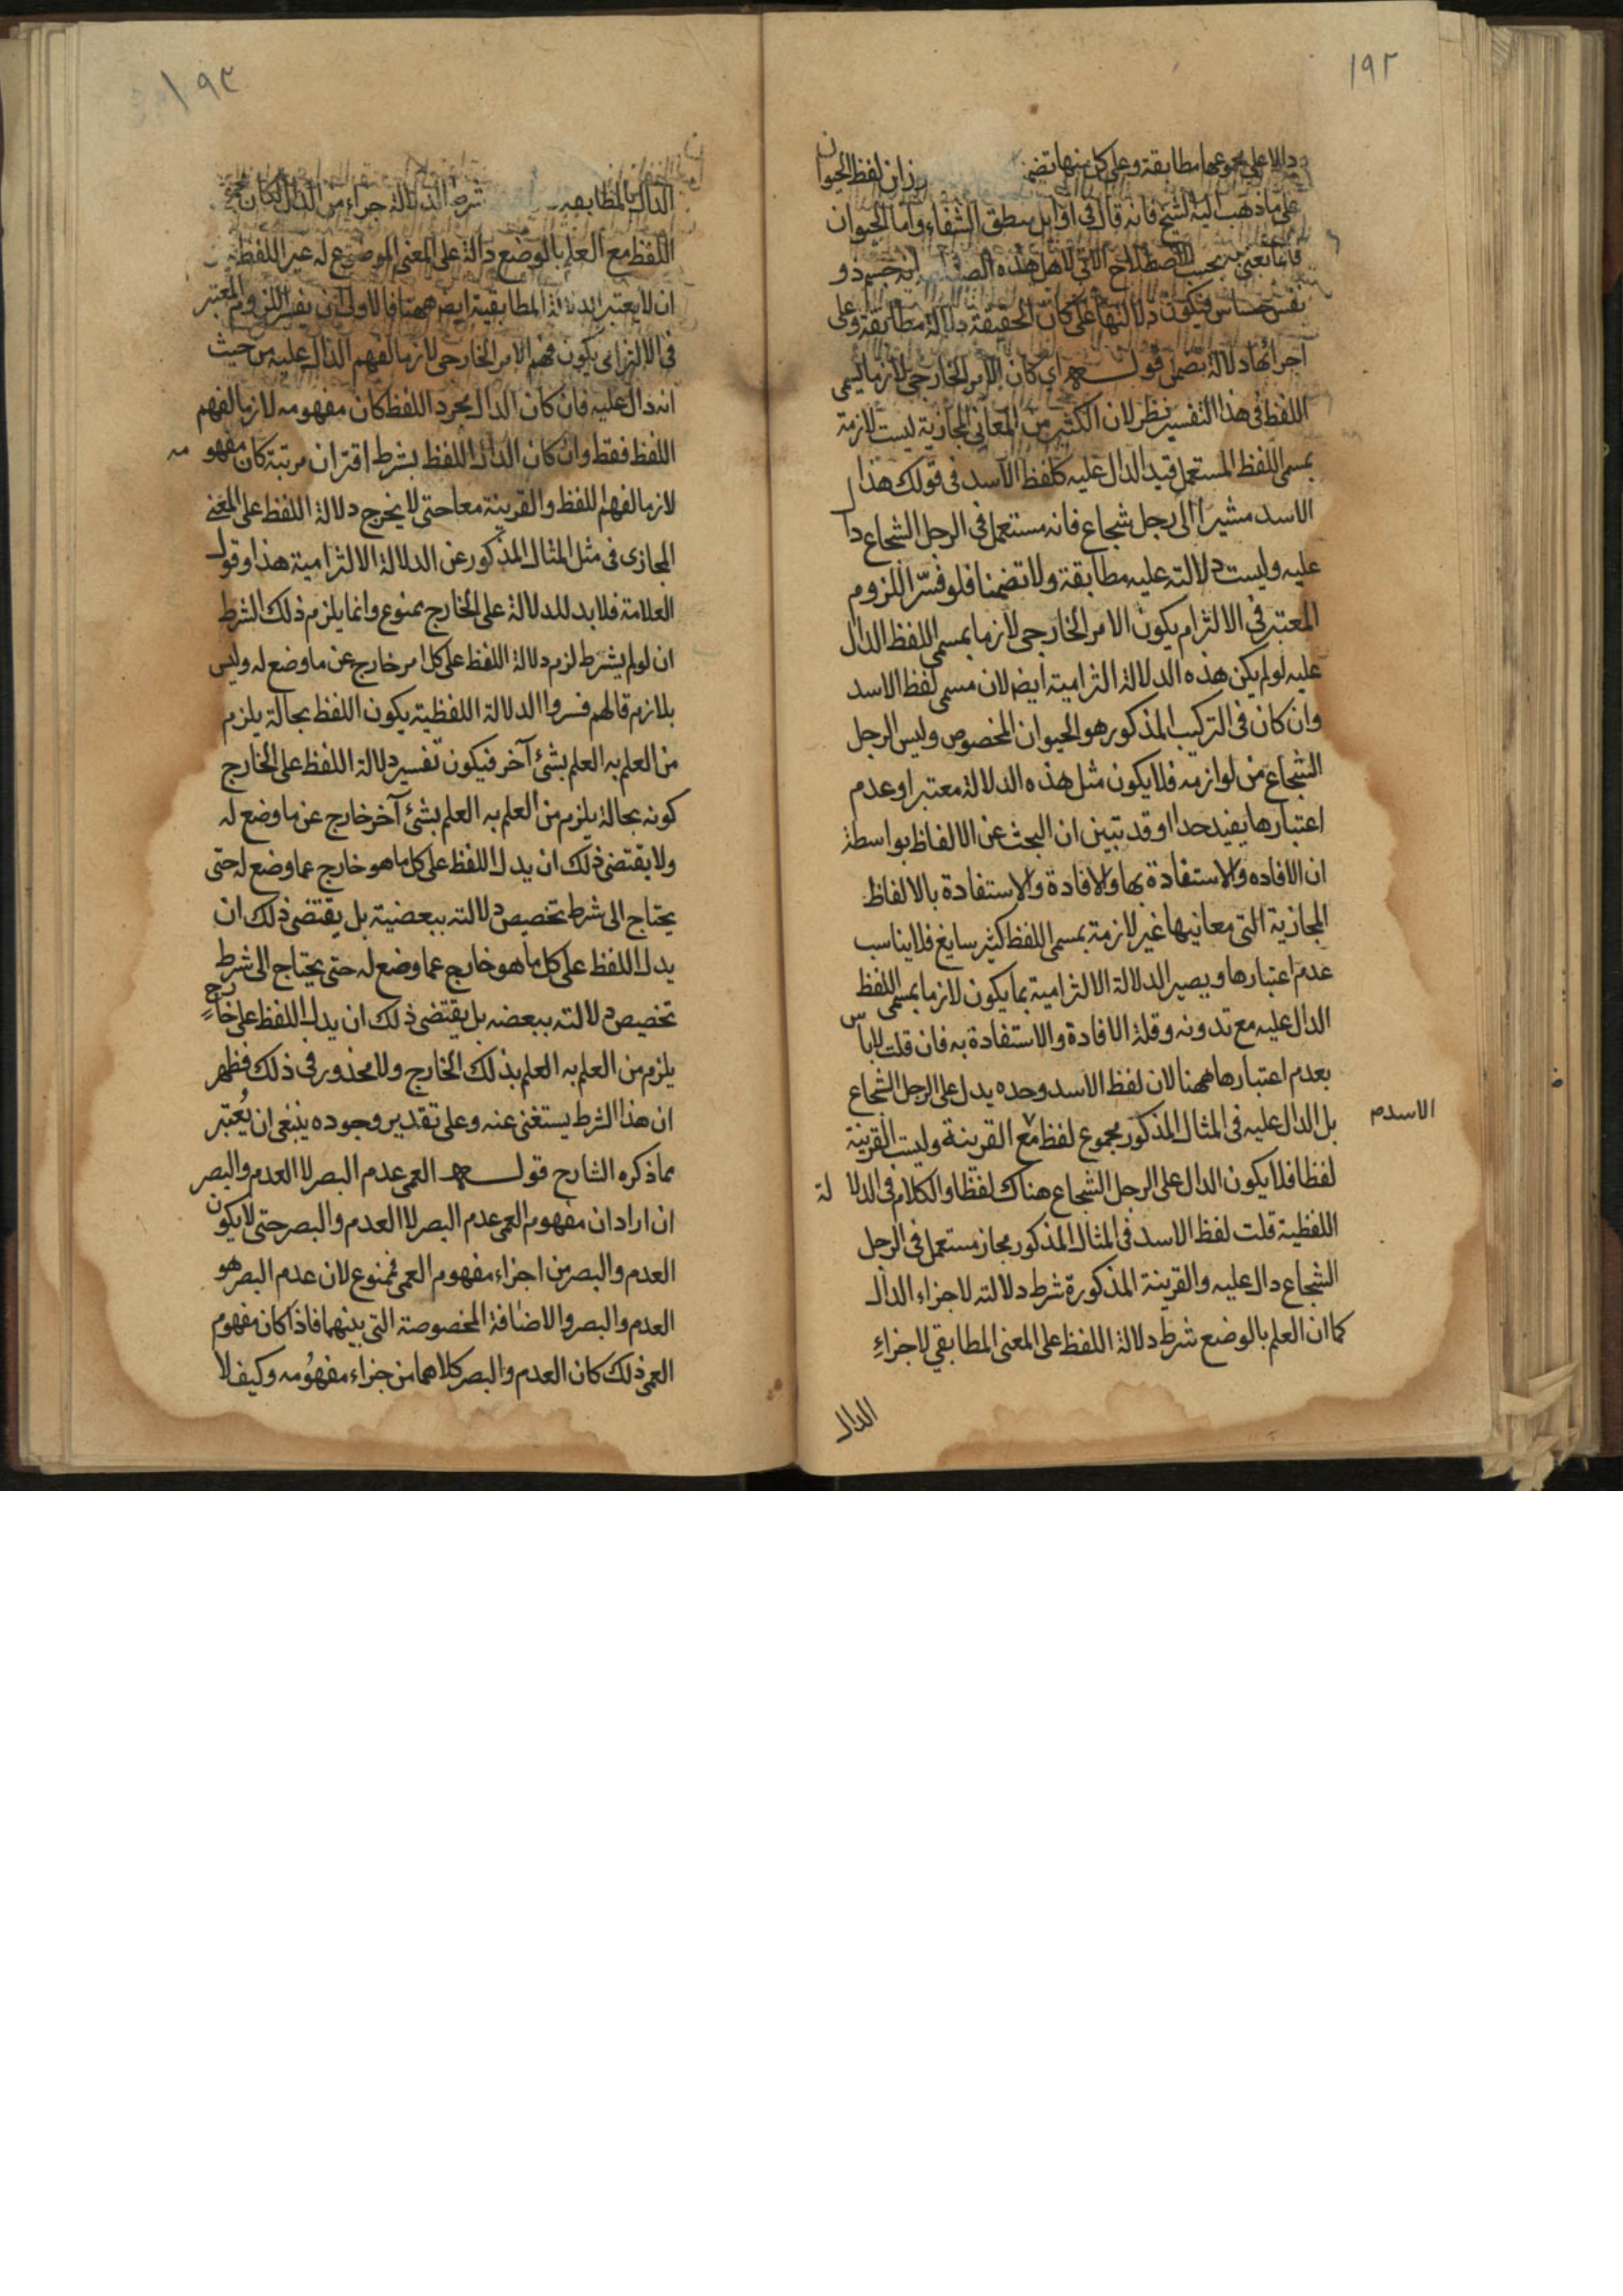 ١٩٢
دالا على مجموعها مطابقة وعلى كل منها تضمنا ان لفظ الحيوان
على ما ذهب اليه الشيخ فانه قال في اوايل منطق الشفاء واما الحيوان
فانا نعني به بحسب الاصطلاح الذي لاهل هذه انه جسم ذو
نفس حساس فيكون دلالتها على كان الحقيقة دلالة مطابقة وعلى
اجزائها دلالة تضمن قوله اي كان الامر الخارجي لازما لمسمى
اللفظ في هذا التفسير نظر لان الكثير من المعاني المجازية ليست لازمة
بمسمى اللفظ المستعمل قيد الدال عليه كلفظ الاسد في قولك هذا
الاسد مشيرا الى رجل شجاع فانه مستعمل في الرجل الشجاع دال
عليه وليست دلالته عليه مطابقة ولا تضمنا فلو فسّر اللزوم
المعتبر في الالتزام يكون الامر الخارجي لازما بمسمى اللفظ الدال
عليه لو لم يكن هذه الدلالة التزامية ايضا لان مسمى لفظ الاسد
وان كان في التركيب المذكور هو الحيوان المخصوص وليس الرجل
الشجاع من لوازمه فلا يكون مثل هذه الدلالة معتبرا وعدم
اعتبارها يفيد حدا وقد تبين ان البحث عن الالفاظ بواسطة
ان الافاده والاستفادة بها والافادة والاستفادة بالالفاظ
المجازية التي معانيها غير لازمة بمسمى اللفظ كثير سايغ فلا يناسب
عدم اعتبارها ويصير الدلالة الالتزامية بما يكون لازما بمسمى اللفظ
الدال عليه مع تدونه وقلة الافادة والاستفادة به فان قلت لا باس
بعدم اعتبارها ههنا لان لفظ الاسد وحده يدل على الرجل الشجاع
بل الدال عليه في المثال المذكور مجموع لفظ مع القرينة وليست القرينة
الاسد م
لفظا فلا يكون الدال على الرجل الشجاع هناك لفظا والكلام في الدلالة
اللفظية قلت لفظ الاسد في المثال المذكور مجاز مستعمل في الرجل
الشجاع دال عليه والقرينة المذكورة شرط دلالته لا جزاء الدال
كما ان العلم بالوضع شرط دلالة اللفظ على المعنى المطابقي لا جزاءِ
الدال
١٩٣
الدال بالمطابقه شرط الدلالة جزاء من الدال لكان مجموع
اللفظ مع العلم بالوضع دالة على المعنى الموضوع له غير اللفظية
ان لا يعتبر الدلالة المطابقية ايضا ههنا فالاولى ان يفسر اللزوم المعتبر
في الالتزامى يكون فهم الامر الخارجى لازما لفهم الدال عليه من حيث
انه دال عليه فان كان الدال بمجرد اللفظ كان مفهومه لازما لفهم
اللفظ فقط وان كان الدال اللفظ بشرط اقتران مرتبة كان مفهومه
لازما لفهم اللفظ والقرينة معا حتى لا يخرج دلالة اللفظ على المعنى
المجازى فى مثل المثال المذكور عن الدلالة الالتزامية هذا وقول
العلامة فلا بد للدلالة على الخارج ممنوع وانما يلزم ذلك الشرط
ان لو لم يشرط لزم دلالة اللفظ على كل امر خارج عن ما وضع له وليس
بلازم قالهم فسروا الدلالة اللفظية يكون اللفظ بحالة يلزم
من العلم به العلم بشئ آخر فيكون تفسير دلالة اللفظ على الخارج
كونه بحالة يلزم من العلم به العلم بشئ آخر خارج عن ما وضع له
ولا يقتضى ذلك ان يدل اللفظ على كل ما هو خارج عما وضع له حتى
يحتاج الى شرط تخصيص دلالته ببعضية بل يقتضى ذلك ان
يدل اللفظ على كل ما هو خارج عما وضع له حتى يحتاج الى شرط
تخصيص دلالته ببعضه بل يقتضى ذلك ان يدل اللفظ على خارجٍ
يلزم من العلم به العلم بذلك الخارج ولا محذور فى ذلك فظهر
ان هذا الشرط يستغنى عنه وعلى تقدير وجوده ينبغى ان يُعتبر
بما ذكره الشارح قوله العمى عدم البصر لا العدم والبصر
ان اراد ان مفهوم العمى عدم البصر لا العدم والبصر حتى لا يكون
العدم والبصر من اجزاء مفهوم العمى فممنوع لان عدم البصر هو
العدم والبصر والاضافة المخصوصة التى بينهما فاذا كان مفهوم
العمى ذلك كان العدم والبصر كلاهما من جزاء مفهومه وكيف لا